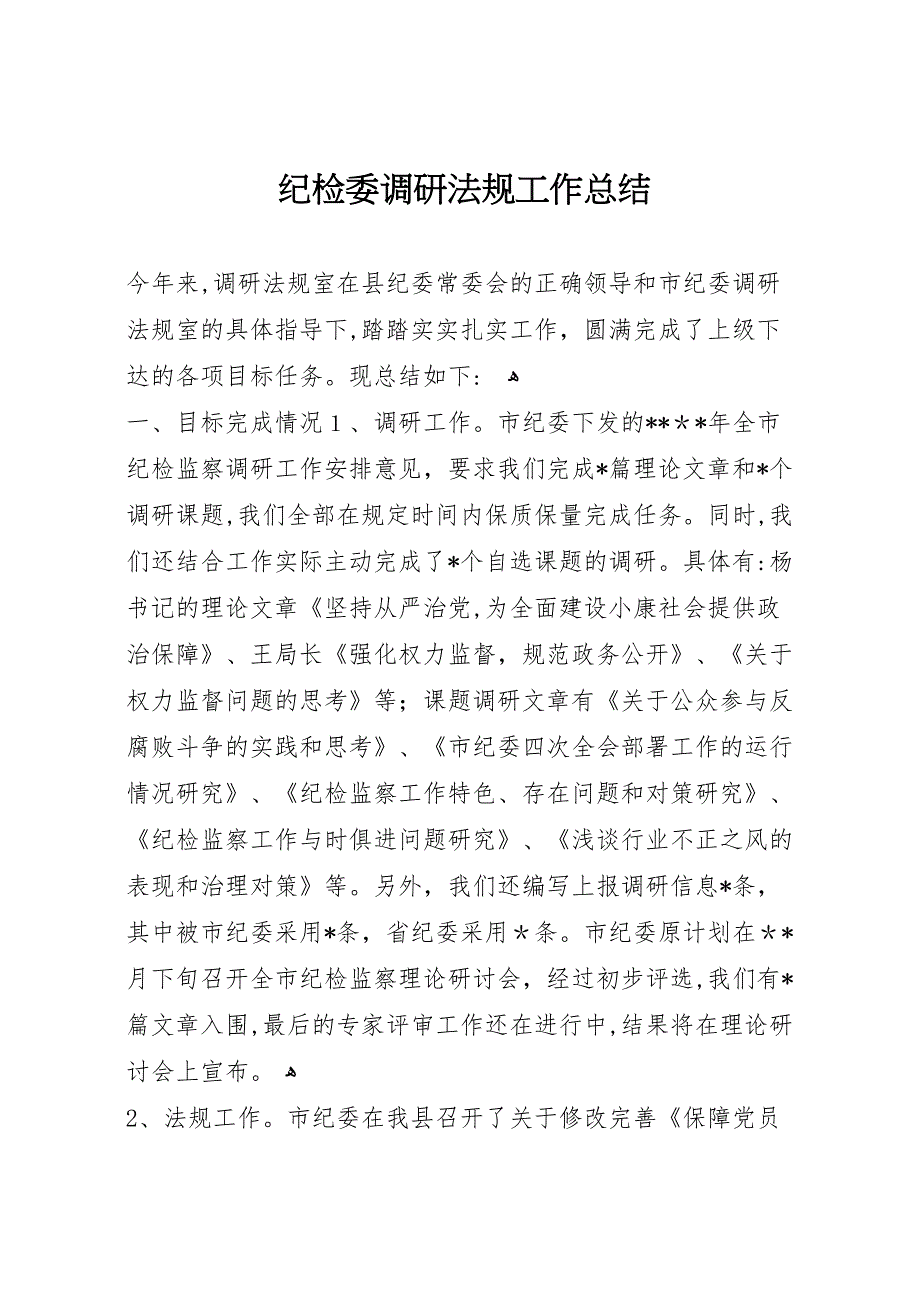 纪检委调研法规工作总结
今年来,调研法规室在县纪委常委会的正确领导和市纪委调研
法规室的具体指导下,踏踏实实扎实工作，圆满完成了上级下
达的各项目标任务。现总结如下: ﻫ
一、目标完成情况１、调研工作。市纪委下发的**＊*年全市
纪检监察调研工作安排意见，要求我们完成*篇理论文章和*个
调研课题,我们全部在规定时间内保质保量完成任务。同时,我
们还结合工作实际主动完成了*个自选课题的调研。具体有:杨
书记的理论文章《坚持从严治党,为全面建设小康社会提供政
治保障》、王局长《强化权力监督，规范政务公开》、《关于
权力监督问题的思考》等；课题调研文章有《关于公众参与反
腐败斗争的实践和思考》、《市纪委四次全会部署工作的运行
情况研究》、《纪检监察工作特色、存在问题和对策研究》、
《纪检监察工作与时俱进问题研究》、《浅谈行业不正之风的
表现和治理对策》等。另外，我们还编写上报调研信息*条，
其中被市纪委采用*条，省纪委采用＊条。市纪委原计划在＊*
月下旬召开全市纪检监察理论研讨会，经过初步评选,我们有*
篇文章入围,最后的专家评审工作还在进行中,结果将在理论研
讨会上宣布。 ﻫ
2、法规工作。市纪委在我县召开了关于修改完善《保障党员